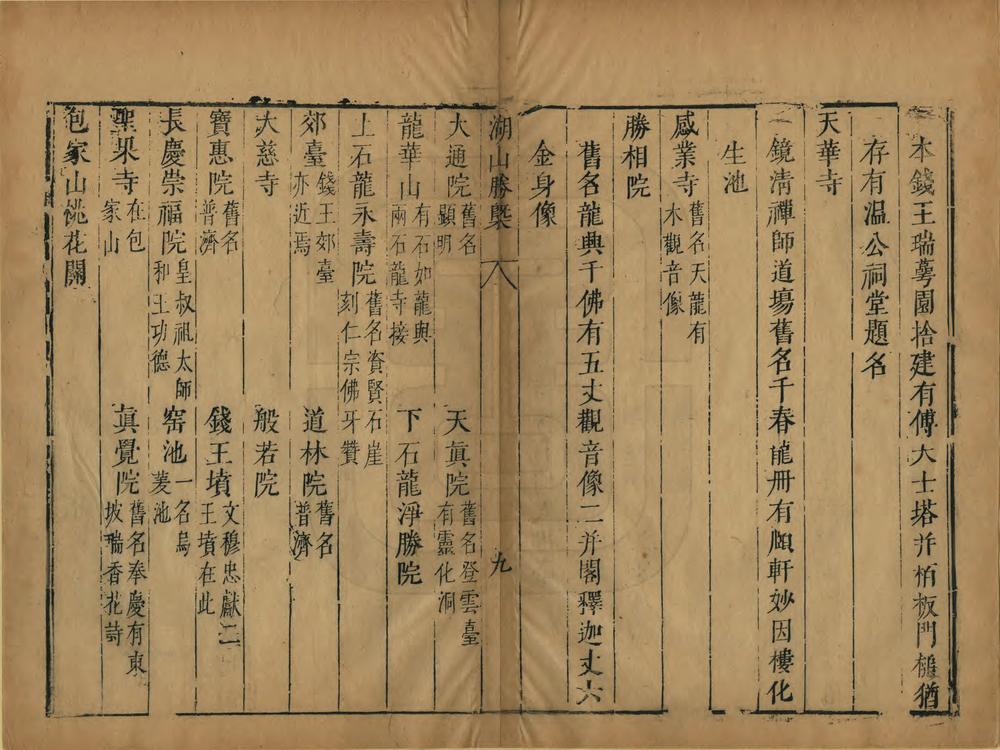 本錢王瑞萼園捨建有傅大士塔并栢板門槌猶
存有溫公祠堂題名
天華寺
鏡清禪師道塲舊名千春龍册有順軒妙因樓化
生池
感業寺舊名天龍有木觀音像
勝相院
舊名龍興千佛有五丈觀音像二并閣釋迦丈六
金身像
湖山勝槩 八 九
大通院舊名顯明 天眞院舊名登雲臺有靈化洞
龍華山有石如龍與兩石龍寺接 下石龍淨勝院
上石龍永壽院舊名資賢石崖刻仁宗佛牙贊
郊臺錢王郊臺亦近焉 道林院舊名普濟
大慈寺 般若院
寶惠院舊名普濟 錢王墳文穆忠獻二王墳在此
長慶崇福院皇叔祖太師和王功德 窑池一名烏菱池
聖果寺在包家山 眞覺院舊名奉慶有東坡瑞香花詩
包家山桃花關